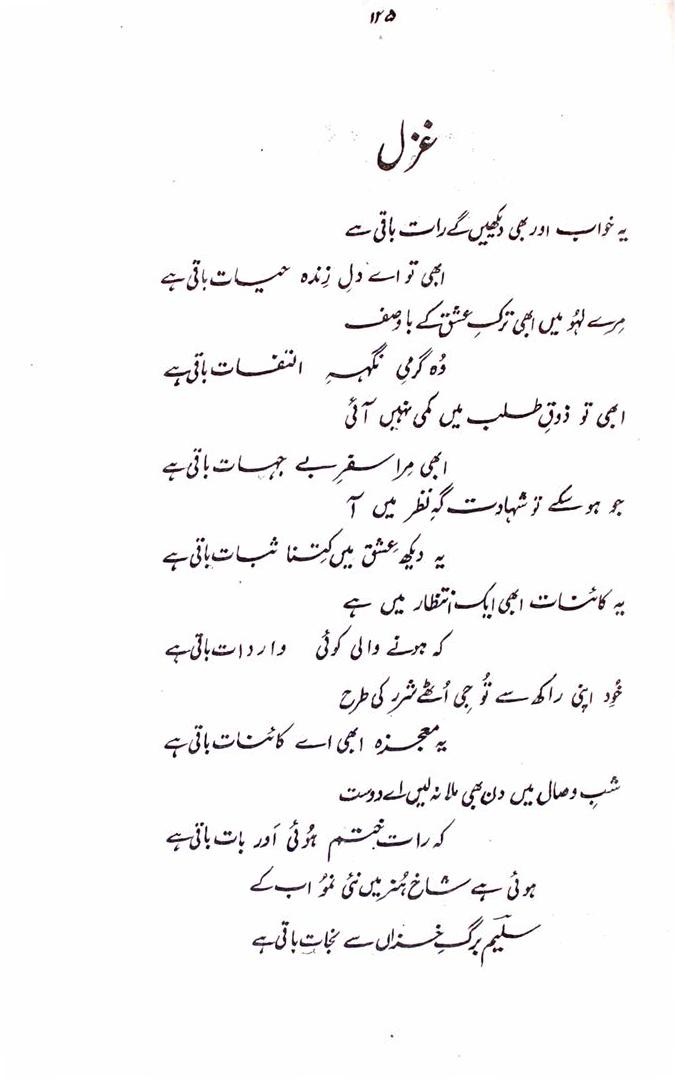 ۱۲۵
غزل
یہ خواب اور بھی دیکھیں گے رات باقی ہے
ابھی تو اے دلِ زندہ حیات باقی ہے
مرے لہُو میں ابھی ترکِ عشق کے باوصف
وُہ گرمیِ نگہہِ التفات باقی ہے
ابھی تو ذوقِ طلب میں کمی نہیں آئی
ابھی مِرا سفرِ بے جہات باقی ہے
جو ہو سکے تو شہادت گہِ نظر میں آ
یہ دیکھ عِشق میں کِتنا ثبات باقی ہے
یہ کائنات ابھی ایک انتظار میں ہے
کہ ہونے والی کوئی واردات باقی ہے
خُود اپنی راکھ سے تُو جی اُٹھے شرر کی طرح
یہ معجزہ ابھی اے کائنات باقی ہے
شبِ وصال میں دن بھی ملا نہ لیں اے دوست
کہ رات ختم ہُوئی اَور بات باقی ہے
ہوئی ہے شاخِ ہُنر میں نئی نمُو اب کے
سلیم برگِ خزاں سے نجات باقی ہے